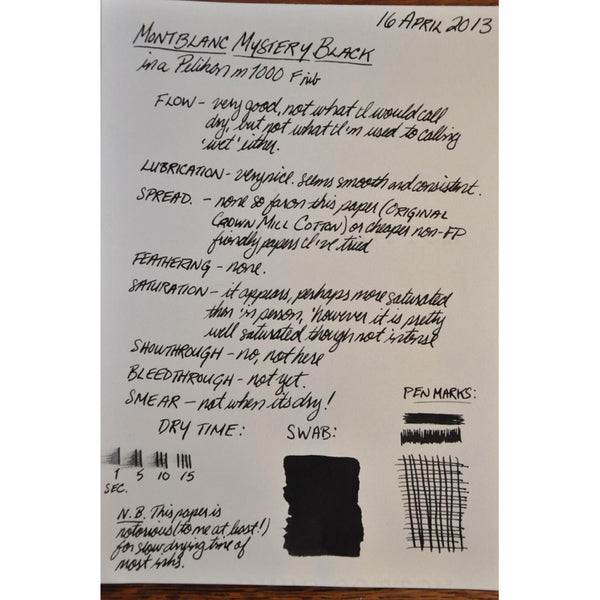 16 APRIL 2013
MONTBLANC MYSTERY BLACK
in a Pelikan m1000 F nib
FLOW - very good, not what I would call
dry, but not what I'm used to calling
'wet' either.
LUBRICATION - very nice. seems smooth and consistent.
SPREAD. - none so far on this paper (ORIGINAL
CROWN MILL COTTON) or cheaper non-FP
friendly papers I've tried
FEATHERING - none.
SATURATION - it appears, perhaps more saturated
than in person, however it is pretty
well saturated though not intense
SHOWTHROUGH - no, not here
BLEEDTHROUGH - not yet.
SMEAR - not when it's dry!
DRY TIME: SWAB: PEN MARKS:
1 5 10 15
SEC.
N.B. This paper is
notorious (to me at least!)
for slow drying time of
most inks.